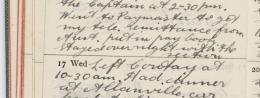 the Captain at 2-30pm.
Went to Paymaster to get
my tele. remittance from
Aunt, put in pay book
Stayed over night with the
17 Wed Left Conday at
10-30 am. Had dinner
at Allanville, car